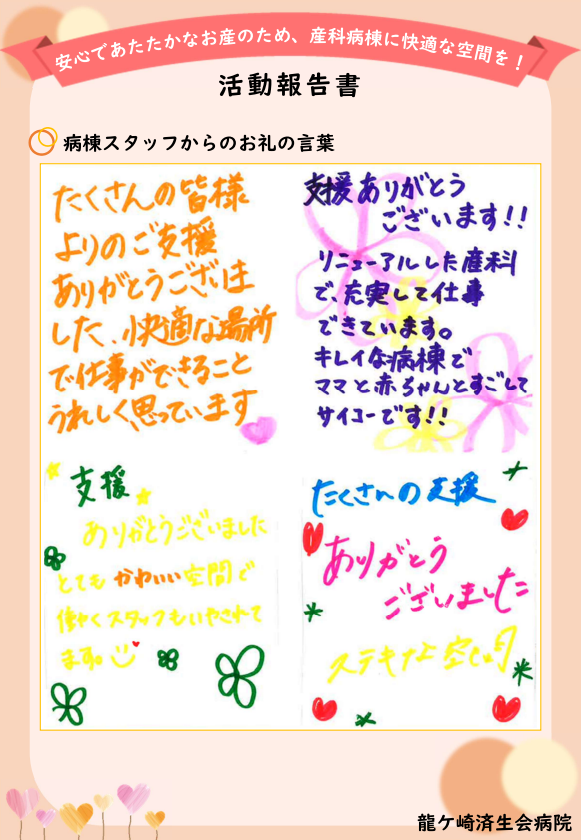 安心であたたかなお産のため、産科病棟に快適な空間を！
活動報告書
病棟スタッフからのお礼の言葉
たくさんの皆様
よりのご支援
ありがとうございま
した、快適な場所
で仕事ができること
うれしく思っています
支援ありがとう
ございます!!
リニューアルした産科
で、充実して仕事
できています。
キレイな病棟で
ママと赤ちゃんとすごして
サイコーです!!
支援
ありがとうございました
とても かわいい空間で
働やくスタッフもいやされて
ます。
たくさんの支援
ありがとう
ございました
ステキな空
龍ケ崎済生会病院